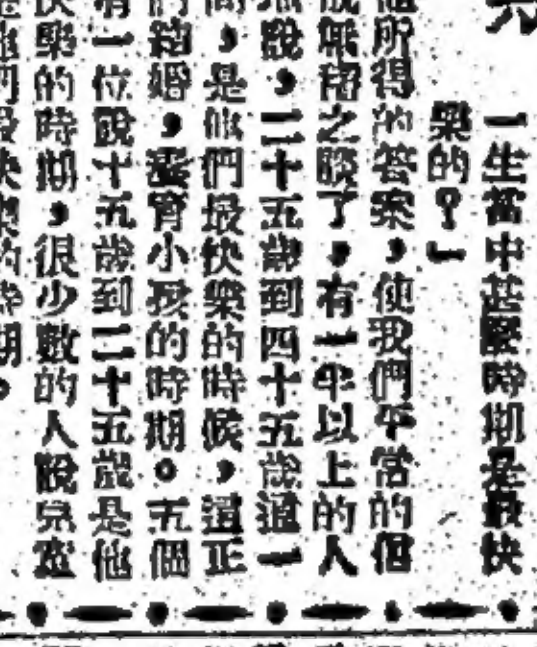 一生當中甚麼時期是最快
樂的？」
所得的答案，使我們平常的個
無稽之談了，有一半以上的人
說，二十五歲到四十五歲這一
，是他們最快樂的時候，這正
結婚，養育小孩的時期。五個
有一位說十五歲到二十五歲是他
快樂的時期，很少數的人說兒童
最快樂的時期。